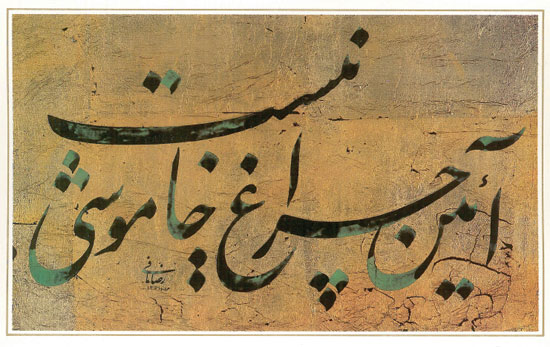 آئین چراغ خاموشی نیست
رضا مافی